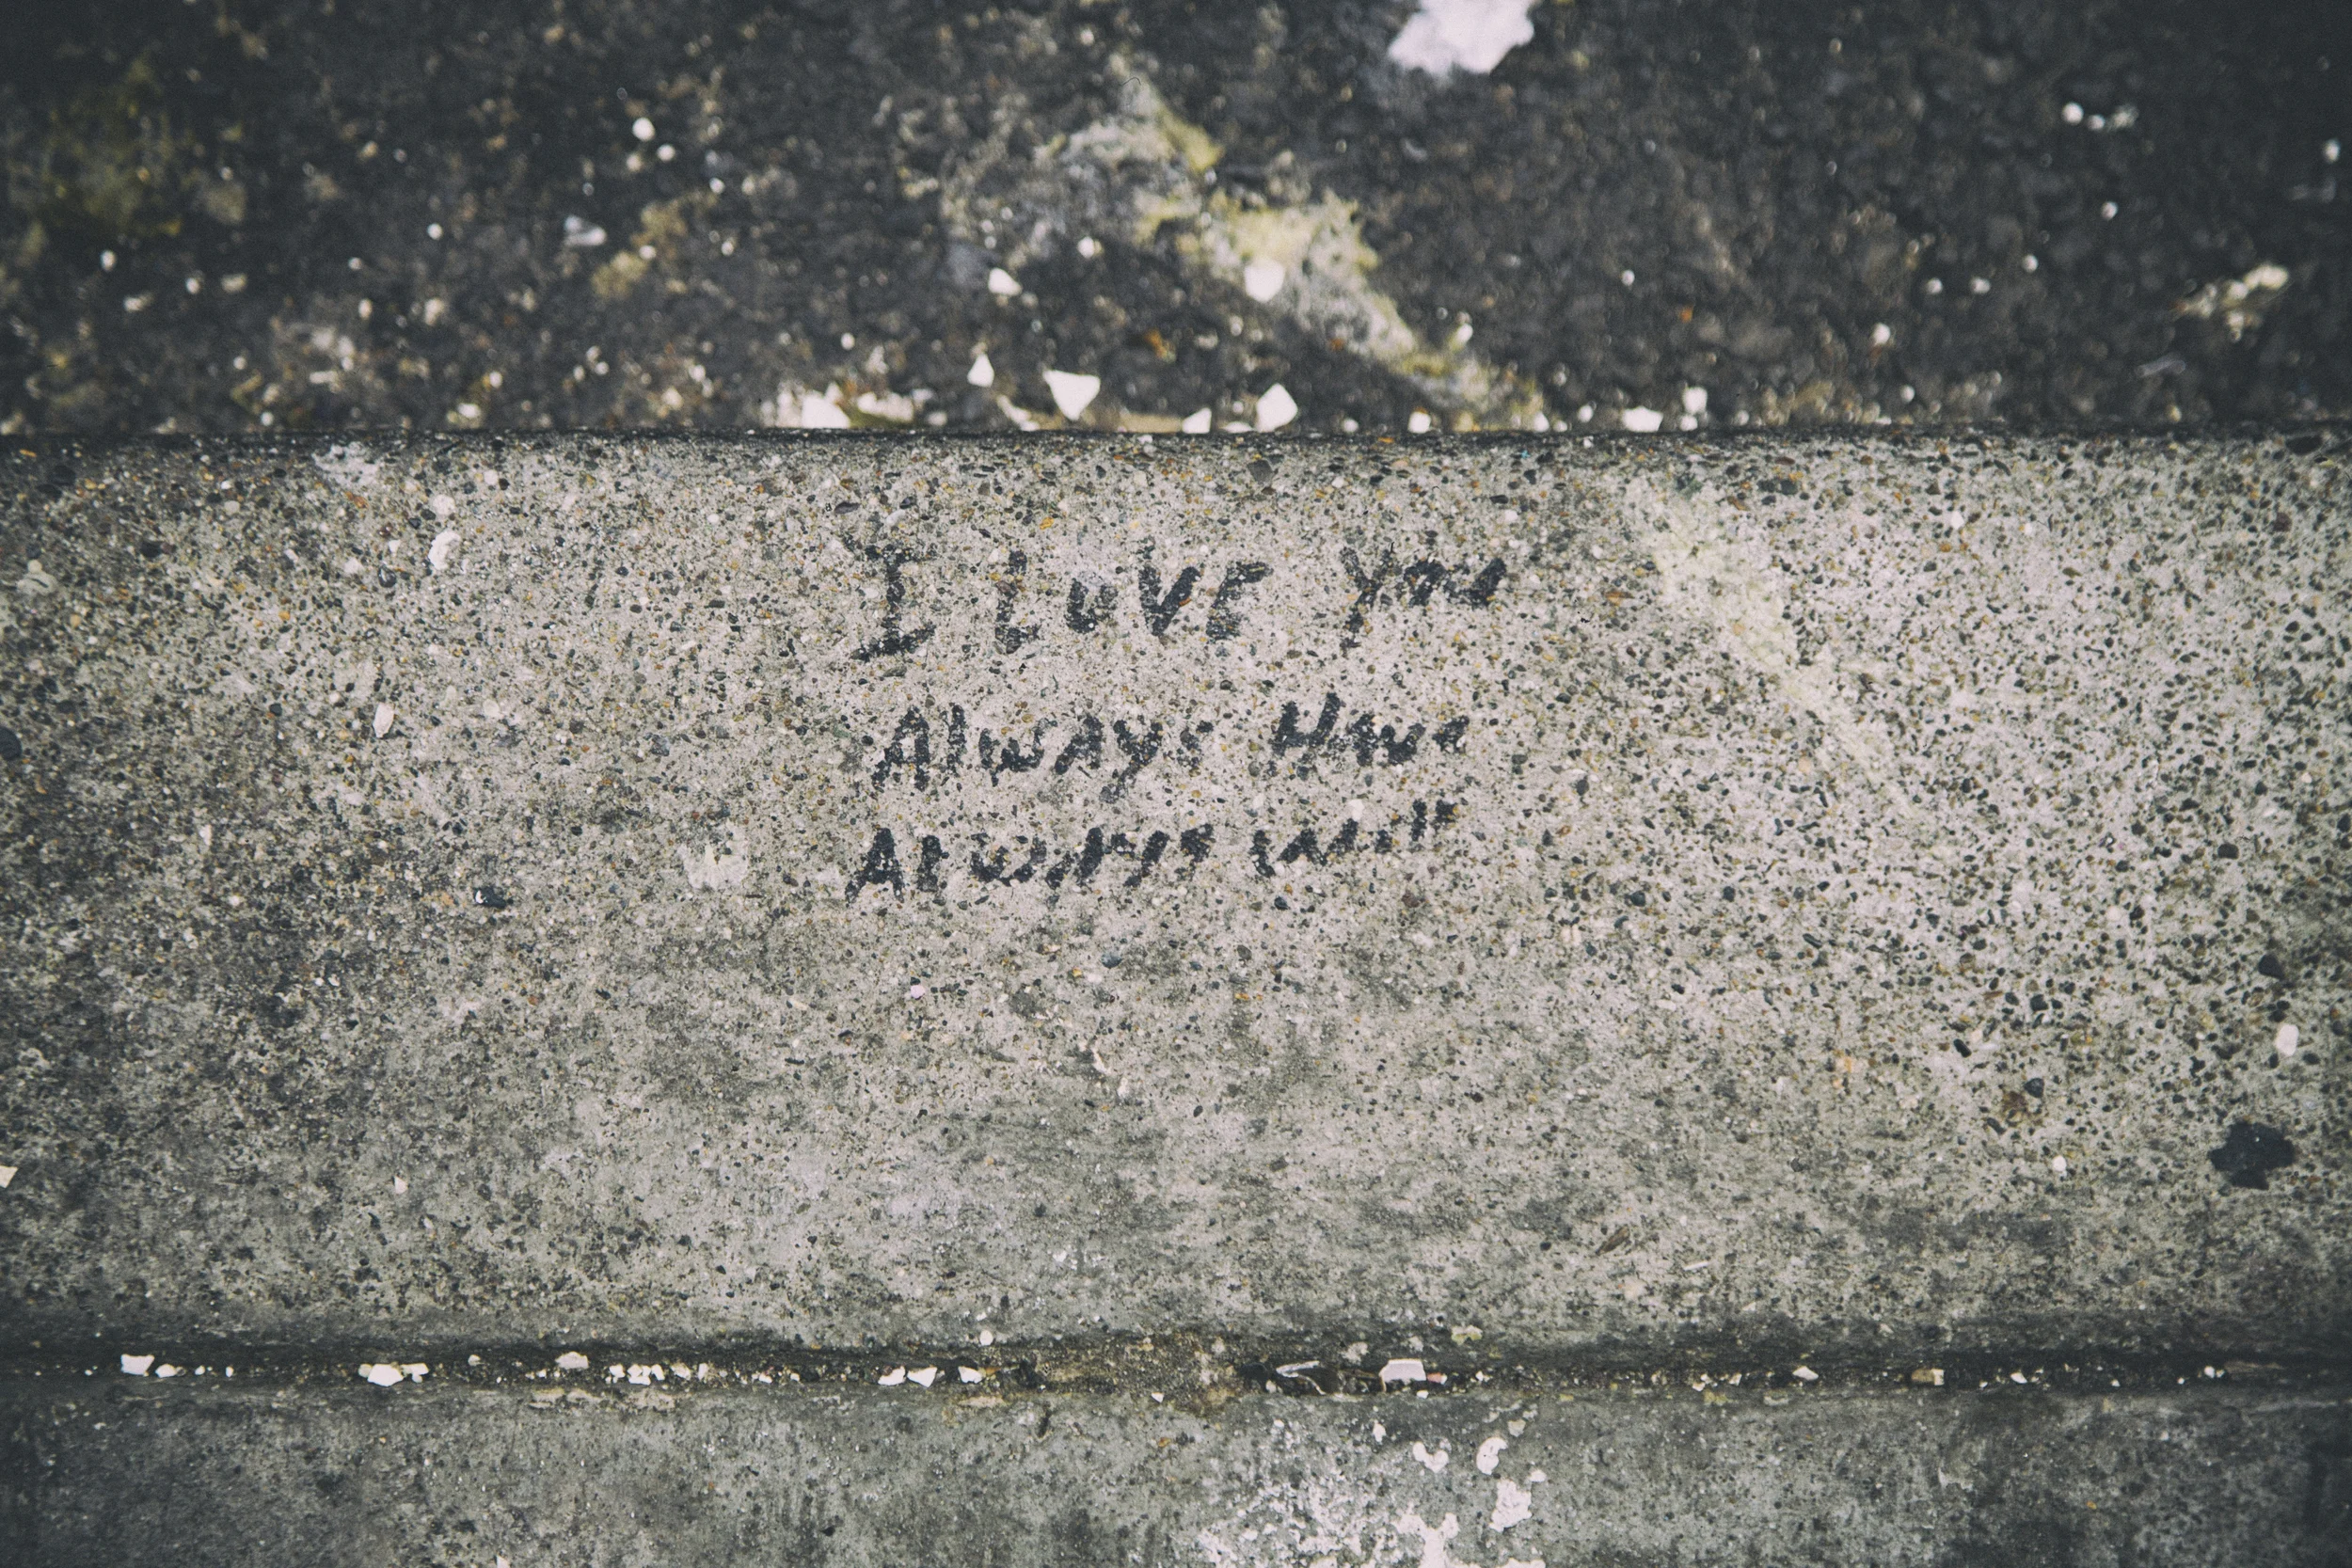 I LOVE you
Always Have
Always will